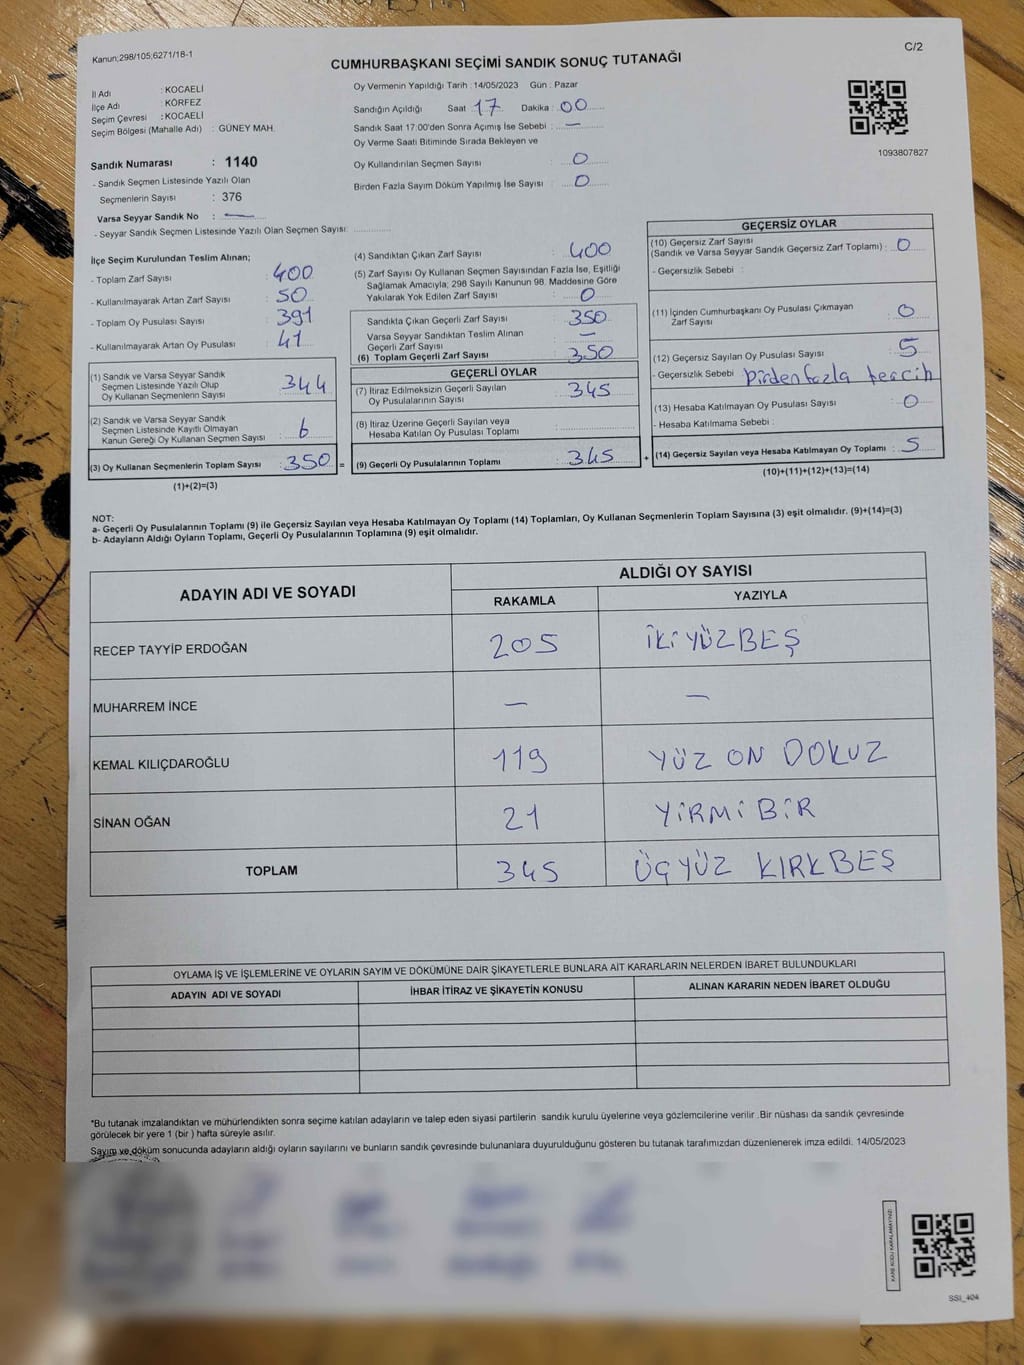 Kanun;298/105;6271/18-1
C/2
CUMHURBAŞKANI SEÇİMİ SANDIK SONUÇ TUTANAĞI
İl Adı : KOCAELİ
İlçe Adı : KÖRFEZ
Seçim Çevresi : KOCAELİ
Seçim Bölgesi (Mahalle Adı) : GÜNEY MAH.
Sandık Numarası : 1140
- Sandık Seçmen Listesinde Yazılı Olan
Seçmenlerin Sayısı : 376
Varsa Seyyar Sandık No : —
- Seyyar Sandık Seçmen Listesinde Yazılı Olan Seçmen Sayısı:
Oy Vermenin Yapıldığı Tarih : 14/05/2023 Gün : Pazar
Sandığın Açıldığı Saat : 17 Dakika : 00
Sandık Saat 17:00'den Sonra Açımış İse Sebebi : —
Oy Verme Saati Bitiminde Sırada Bekleyen ve
Oy Kullandırılan Seçmen Sayısı : 0
Birden Fazla Sayım Döküm Yapılmış İse Sayısı : 0
1093807827
İlçe Seçim Kurulundan Teslim Alınan;
- Toplam Zarf Sayısı : 400
- Kullanılmayarak Artan Zarf Sayısı : 50
- Toplam Oy Pusulası Sayısı : 391
- Kullanılmayarak Artan Oy Pusulası : 41
(1) Sandık ve Varsa Seyyar Sandık
Seçmen Listesinde Yazılı Olup
Oy Kullanan Seçmenlerin Sayısı : 344
(2) Sandık ve Varsa Seyyar Sandık
Seçmen Listesinde Kayıtlı Olmayan
Kanun Gereği Oy Kullanan Seçmen Sayısı : 6
(3) Oy Kullanan Seçmenlerin Toplam Sayısı : 350 =
(1)+(2)=(3)
(4) Sandıktan Çıkan Zarf Sayısı : 400
(5) Zarf Sayısı Oy Kullanan Seçmen Sayısından Fazla İse, Eşitliği
Sağlamak Amacıyla; 298 Sayılı Kanunun 98. Maddesine Göre
Yakılarak Yok Edilen Zarf Sayısı : 0
Sandıkta Çıkan Geçerli Zarf Sayısı : 350
Varsa Seyyar Sandıktan Teslim Alınan
Geçerli Zarf Sayısı : —
(6) Toplam Geçerli Zarf Sayısı : 350
GEÇERLİ OYLAR
(7) İtiraz Edilmeksizin Geçerli Sayılan
Oy Pusulalarının Sayısı : 345
(8) İtiraz Üzerine Geçerli Sayılan veya
Hesaba Katılan Oy Pusulası Toplamı :
(9) Geçerli Oy Pusulalarının Toplamı : 345 +
GEÇERSİZ OYLAR
(10) Geçersiz Zarf Sayısı
(Sandık ve Varsa Seyyar Sandık Geçersiz Zarf Toplamı) : 0
- Geçersizlik Sebebi :
(11) İçinden Cumhurbaşkanı Oy Pusulası Çıkmayan
Zarf Sayısı : 0
(12) Geçersiz Sayılan Oy Pusulası Sayısı : 5
- Geçersizlik Sebebi : birden fazla tercih
(13) Hesaba Katılmayan Oy Pusulası Sayısı : 0
- Hesaba Katılmama Sebebi :
(14) Geçersiz Sayılan veya Hesaba Katılmayan Oy Toplamı : 5
(10)+(11)+(12)+(13)=(14)
NOT:
a- Geçerli Oy Pusulalarının Toplamı (9) ile Geçersiz Sayılan veya Hesaba Katılmayan Oy Toplamı (14) Toplamları, Oy Kullanan Seçmenlerin Toplam Sayısına (3) eşit olmalıdır. (9)+(14)=(3)
b- Adayların Aldığı Oyların Toplamı, Geçerli Oy Pusulalarının Toplamına (9) eşit olmalıdır.
ADAYIN ADI VE SOYADI ALDIĞI OY SAYISI
RAKAMLA YAZIYLA
RECEP TAYYİP ERDOĞAN 205 İKİ YÜZ BEŞ
MUHARREM İNCE — —
KEMAL KILIÇDAROĞLU 119 YÜZ ON DOKUZ
SİNAN OĞAN 21 YİRMİ BİR
TOPLAM 345 ÜÇ YÜZ KIRK BEŞ
OYLAMA İŞ VE İŞLEMLERİNE VE OYLARIN SAYIM VE DÖKÜMÜNE DAİR ŞİKAYETLERLE BUNLARA AİT KARARLARIN NELERDEN İBARET BULUNDUKLARI
ADAYIN ADI VE SOYADI İHBAR İTİRAZ VE ŞİKAYETİN KONUSU ALINAN KARARIN NEDEN İBARET OLDUĞU
*Bu tutanak imzalandıktan ve mühürlendikten sonra seçime katılan adayların ve talep eden siyasi partilerin sandık kurulu üyelerine veya gözlemcilerine verilir .Bir nüshası da sandık çevresinde
görülecek bir yere 1 (bir ) hafta süreyle asılır.
Sayım ve döküm sonucunda adayların aldığı oyların sayılarını ve bunların sandık çevresinde bulunanlara duyurulduğunu gösteren bu tutanak tarafımızdan düzenlenerek imza edildi. 14/05/2023
KARE KODU KARALAMAYINIZ!
SSI_404